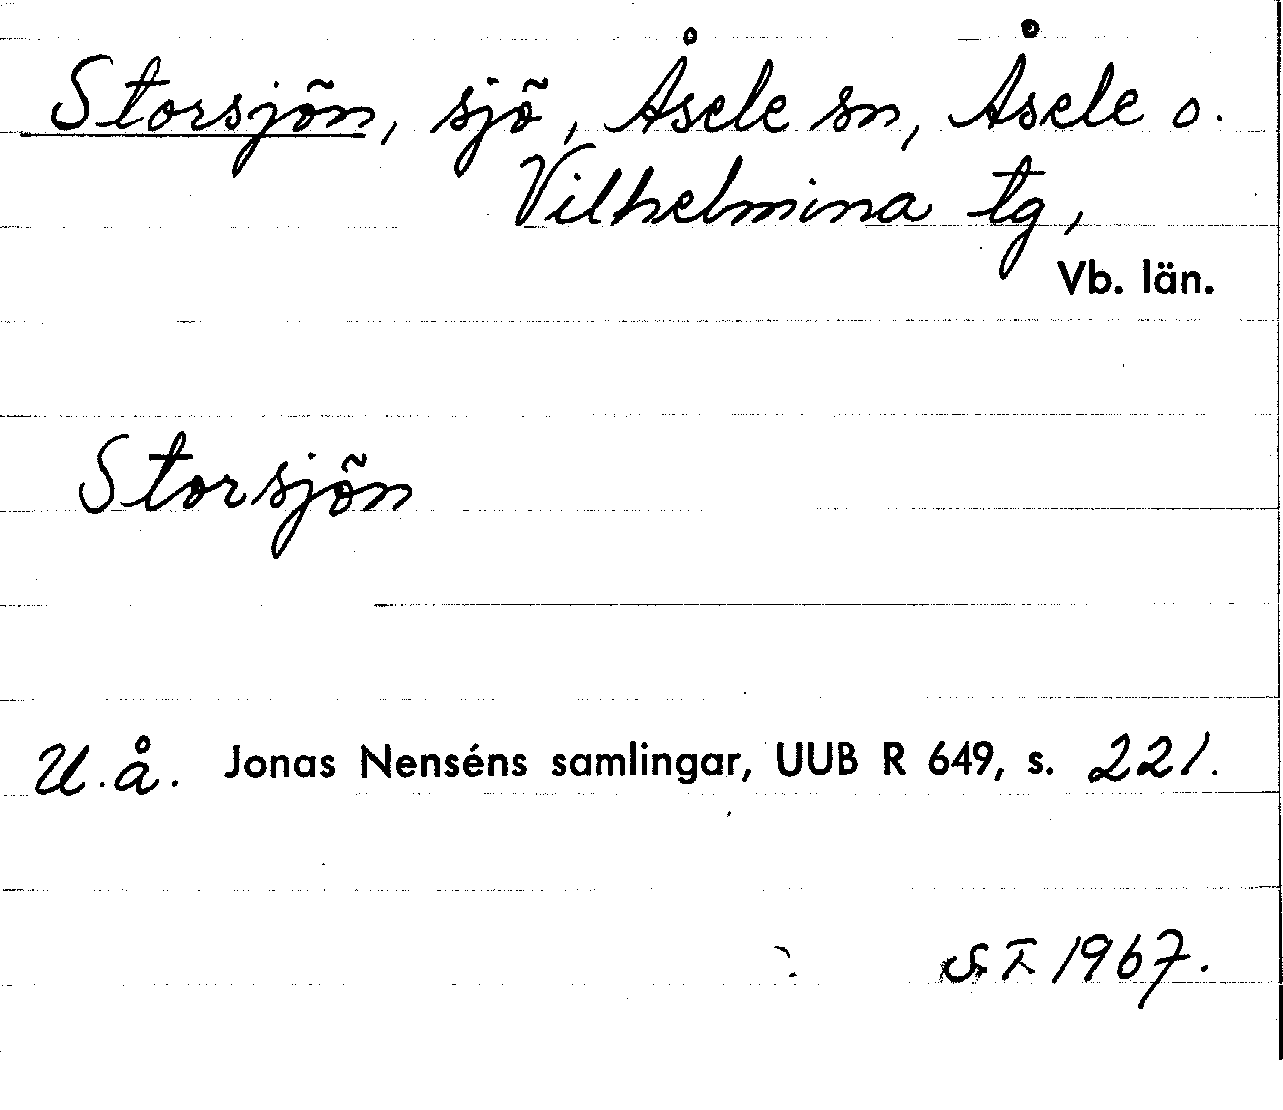 Storsjön, sjö, Åsele sn, Åsele o.
Vilhelmina tg,
Vb. län.
Storsjön
U.å. Jonas Nenséns samlingar, UUB R 649, s. 221.
1967.